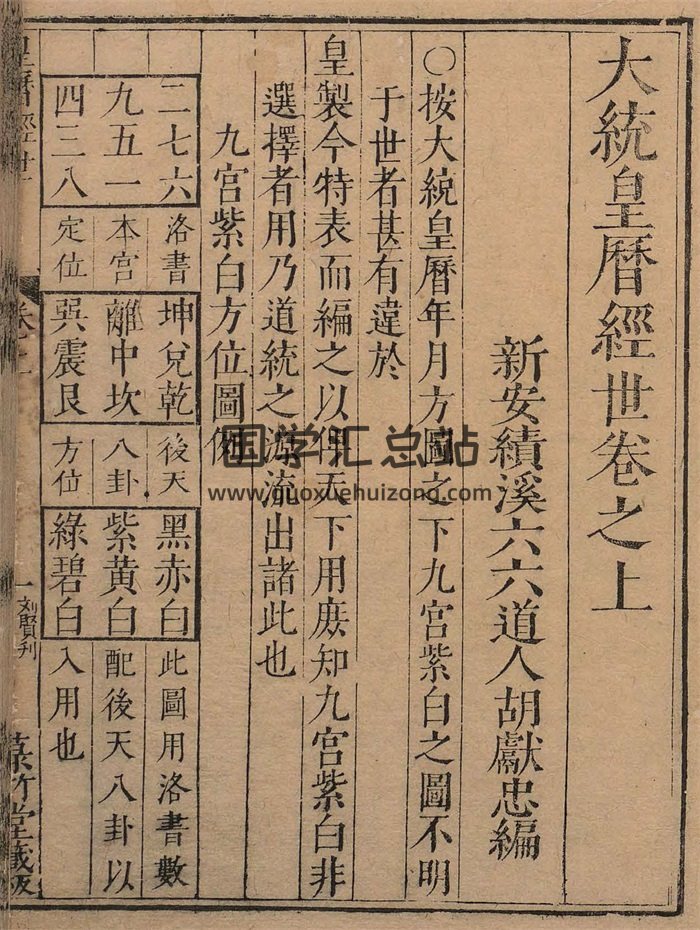 大統皇曆經世卷之上
新安績溪六六道人胡獻忠編
○按大統皇曆年月方圖之下九宮紫白之圖不明
于世者甚有違於
皇製今特表而編之以俾天下用庶知九宮紫白非
選擇者用乃道統之源流出諸此也
九宮紫白方位圖例
二七六 洛書 坤兌乾 後天 黑赤白 此圖用洛書數
九五一 本宮 離中坎 八卦 紫黃白 配後天八卦以
四三八 定位 巽震艮 方位 綠碧白 入用也
皇曆經世
卷之上
一
刘賢刊
堂藏板
国学汇总站
www.guoxuehuizong.com